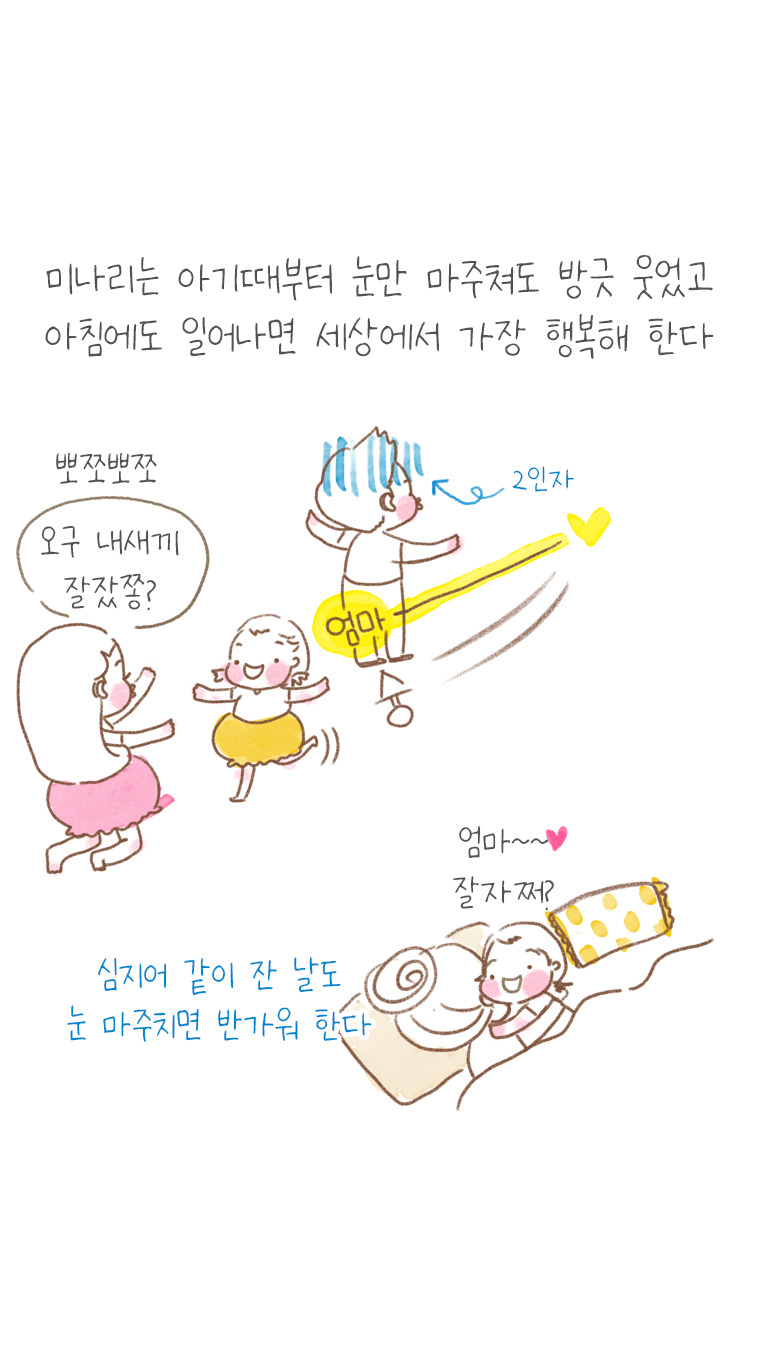 미나리는 아기때부터 눈만 마주쳐도 방긋 웃었고
아침에도 일어나면 세상에서 가장 행복해 한다
뽀쪼뽀쪼
오구 내새끼
잘잤쫑?
2인자
엄마
슝
엄마~~♥
잘자쩌?
심지어 같이 잔 날도
눈 마주치면 반가워 한다